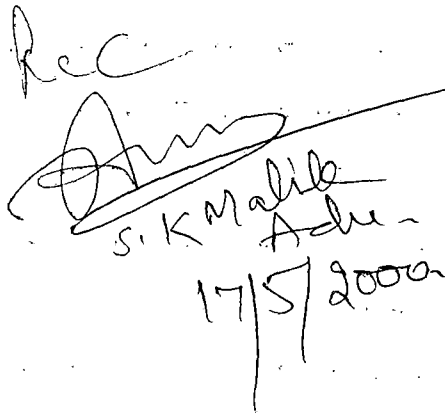 Rec
S. K Malik
Adv.
17/5/2000